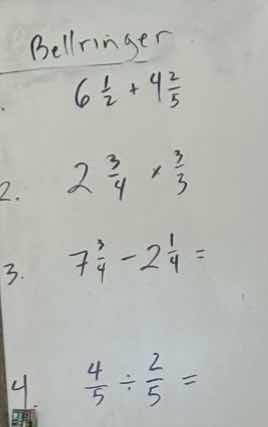 Bellringer
. 6 1/2 + 4 2/5
2. 2 3/4 × 3/3
3. 7 3/4 - 2 1/4 =
4. 4/5 ÷ 2/5 =